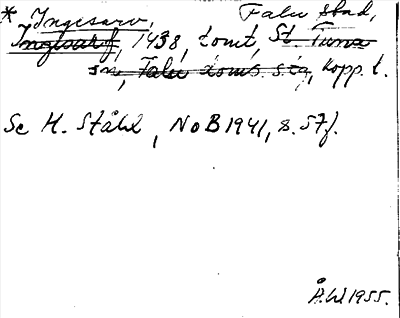 * Ingesarv, Falu stad,
Ingesarf, 1438, tomt, St. Tuna
sn, Falu doms.s:ga, Kopp. l.
Se H. Ståhl, NoB 1941, s. 57f.
Å.W 1955.